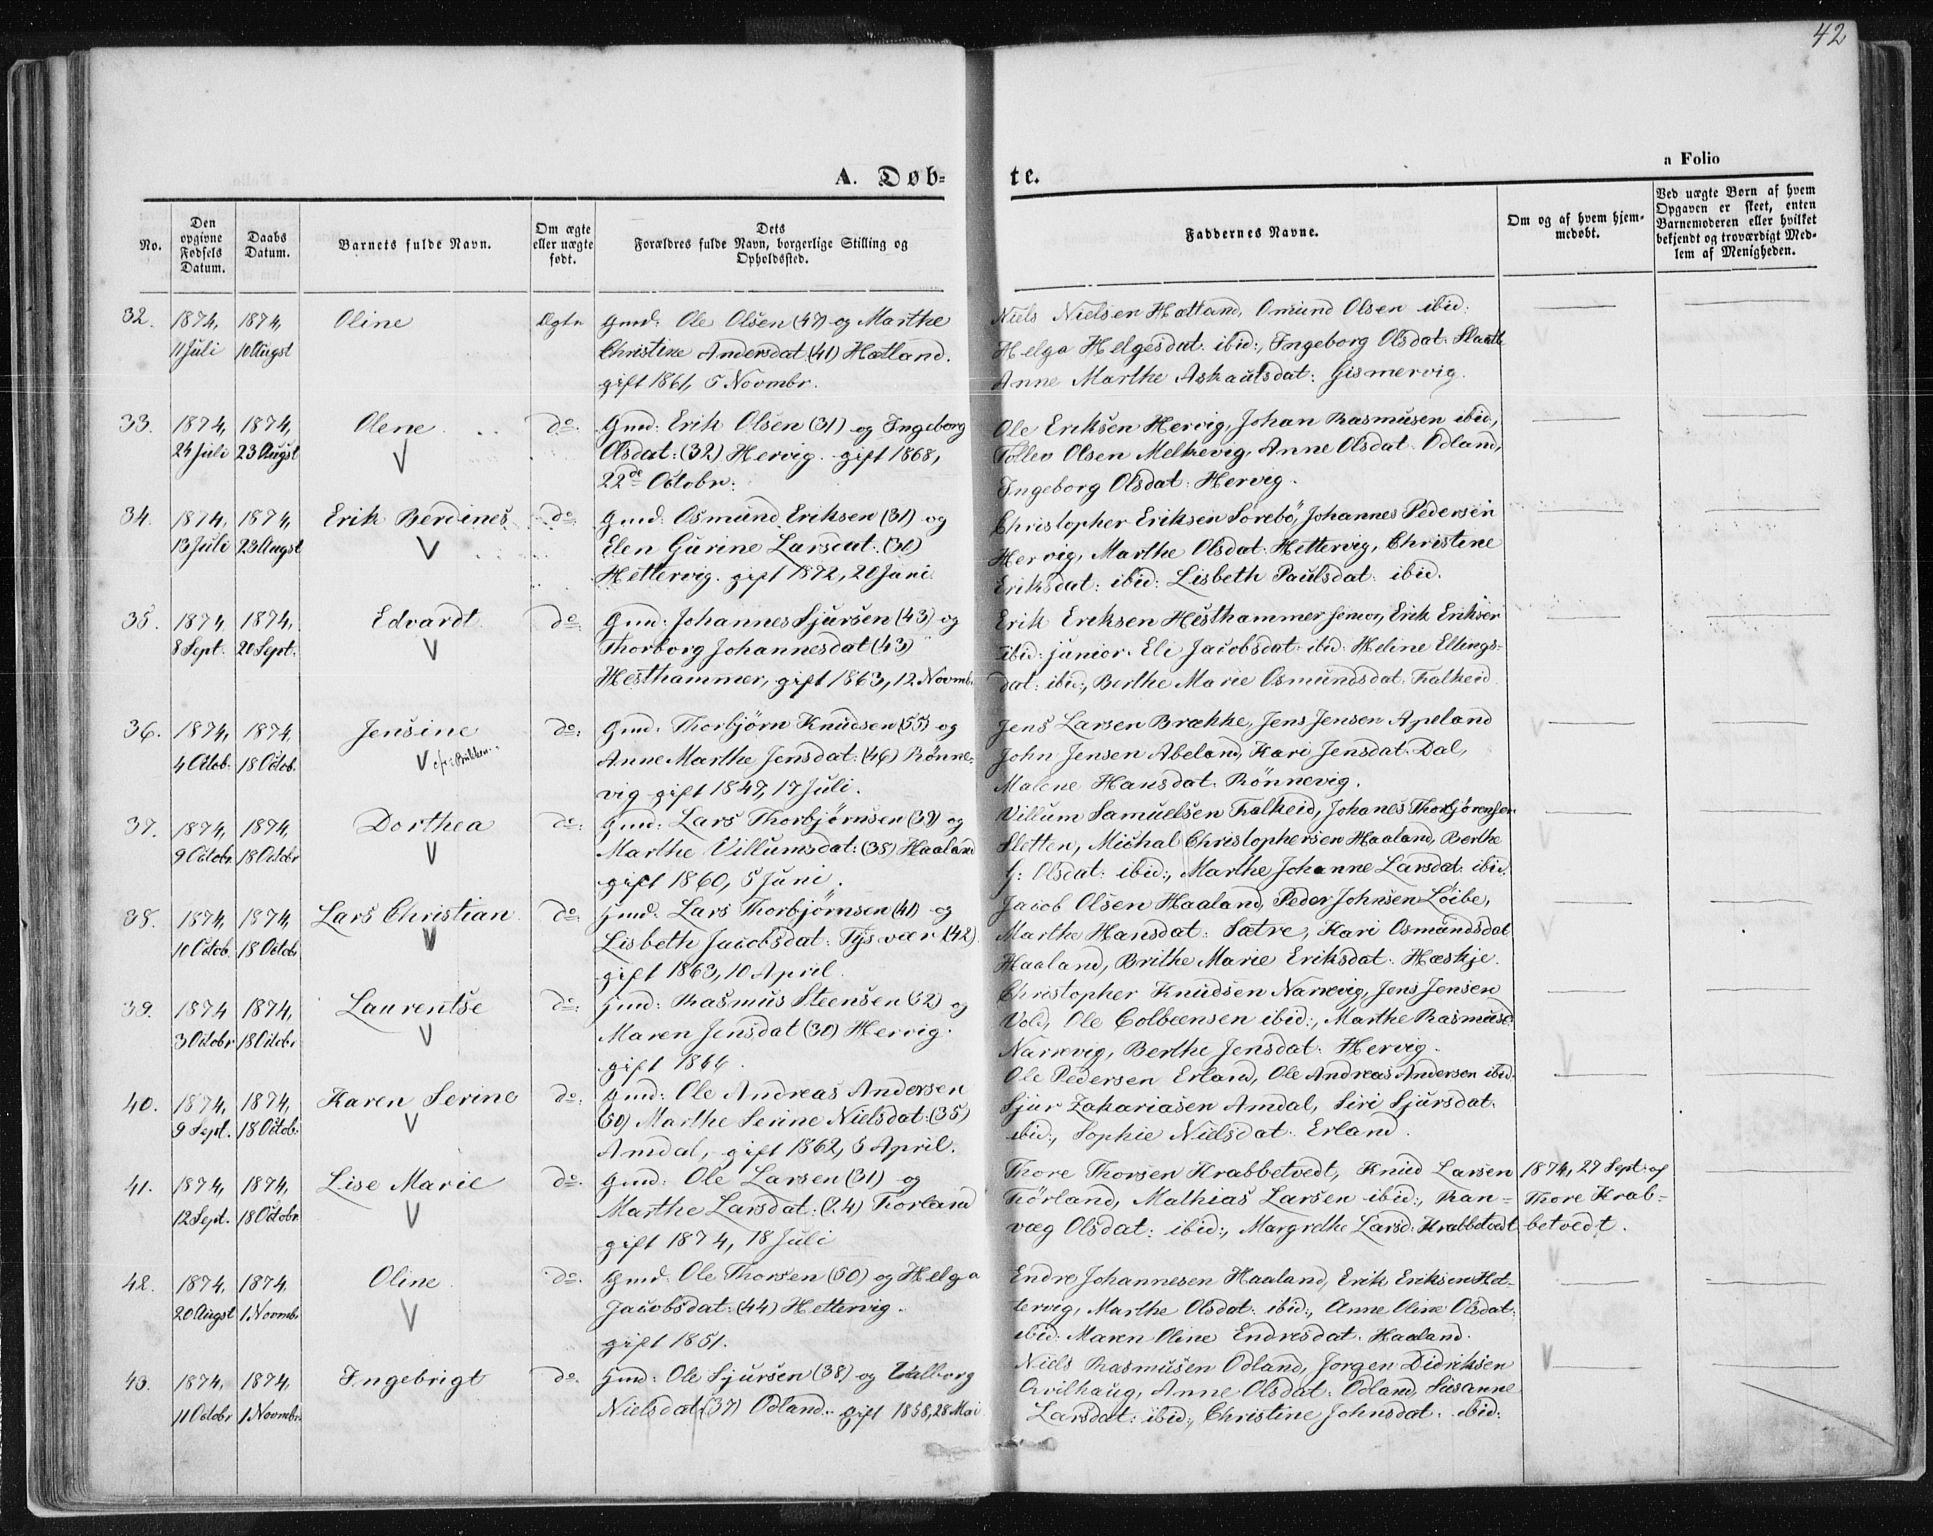 42
A. Døb-
te.
a Folio
No.
Den opgivne Fødsels Datum.
Daabs Datum.
Barnets fulde Navn.
Om ægte eller uægte født.
Dets Forældres fulde Navn, borgerlige Stilling og Opholdssted.
Faddernes Navne.
Om og af hvem hjemmedøbt.
Ved uægte Børn af hvem Opgaven er skeet, enten Barnemoderen eller hvilket bekjendt og troværdigt Medlem af Menigheden.
32. 1874, 1874, Oline Ægte Gmd: Ole Olsen (47) og Marthe
11 Juli 10 Augst Christine Andersdat (41) Hetland.
gift 1861, 5 Novmbr.
Niels Nielsen Hetland, Omund Olsen ibid:
Helga Helgesdat: ibid:, Ingeborg Olsdat:
Anne Marthe Askautsdat: Gismervig.
33. 1874, 1874, Olene do: Gmd: Erik Olsen (31) og Ingeborg
24 Juli 23 Augst V Olsdat: (32) Hervig. gift 1868,
22de Octobr:
Ole Eriksen Hervig, Johan Rasmusen ibid,
Tollev Olsen Melkevig, Anne Olsdat: Odland,
Ingeborg Olsdat: Hervig.
34. 1874, 1874, Erik Berdines do: Gmd: Osmund Eriksen (31) og
13 Juli 23 Augst V Elen Gurine Larsdat: (31)
Hettervig. gift 1872, 20 Juni.
Christopher Eriksen Sørebö, Johannes Pedersen
Hervig, Marthe Olsdat: Hettervig, Christine
Eriksdat: ibid: Lisbeth Paulsdat: ibid.
35. 1874, 1874, Edvardt do: Gmd: Johannes Sjursen (43) og
8 Sept. 20 Sept. V Thorborg Johannesdat (43)
Hesthammer, gift 1863, 12 Novmb.
Erik Eriksen Hesthammer senior, Erik Eriksen
ibid: junior. Eli Jacobsdat: ibid: Heline Ellings-
dat: ibid:, Berthe Marie Osmundsdat: Falkeid.
36. 1874, 1874, Jensine do: Gmd: Thorbjörn Knudsen (55) og
4 Octob. 18 Octob. V Anne Marthe Jensdat: (46) Rönne-
vig gift 1847, 17 Juli.
Jens Larsen Brække, Jens Jensen Apeland
John Jensen Abeland, Kari Jensdat: Dal,
Malene Hansdat: Rönnevig.
37. 1874, 1874, Dorthea do: Gmd: Lars Thorbjørnsen (39) og
9 Octobr 18 Octobr V Marthe Villumsdat: (38) Haaland
gift 1860, 5 Juni.
Villum Samuelsen Falkeid, Johanes Thorbjørensen
Sletten, Michal Christophersen Haaland, Berthe
J: Olsdat: ibid:, Marthe Johanne Larsdat: ibid.
38. 1874, 1874, Lars Christian do: Gmd: Lars Thorbjörnsen (41) og
10 Octob. 18 Octobr V Lisbeth Jacobsdat: Tysvær (42)
gift 1863, 10 April.
Jacob Olsen Haaland, Peder Johnsen Löibe,
Marthe Hansdat: Sætre, Kari Osmundsdat
Haaland, Brithe Marie Eriksdat: Hæskje.
39. 1874 1874, Laurentse do: Gmd: Rasmus Steensen (32) og
3 Octobr 18 Octobr V Maren Jensdat (30) Hervig.
gift 1866.
Christopher Knudsen Narrevig, Jens Jensen
Vold, Ole Colbeensen ibid:, Marthe Rasmusd:
Narrevig, Berthe Jensdat: Hervig.
40. 1874, 1874, Karen Serine do: Gmd: Ole Andreas Andersen
9 Sept. 18 Octob. V (50) Marthe Serine Nielsdat: (35)
Amdal, gift 1862, 5 April.
Ole Pedersen Erland, Ole Andreas Andersen ibid.
Sjur Zakariasen Amdal, Siri Sjursdat.
ibid:, Sophie Nielsdat: Erland.
41. 1874, 1874, Lise Marie do: Gmd: Ole Larsen (31) og
12 Sept. 18 Octobr V Marthe Larsdat: (24) Torland
gift 1874, 18 Juli
Thore Thorsen Krabbetvedt, Knud Larsen 1874, 27 Sept. af
Törland, Mathias Larsen ibid:, Ran- Thore Krab-
væg Olsdat: ibid:, Margrethe Larsd: Krabbetvedt betvedt.
42. 1874, 1874, Oline do: Gmd: Ole Thorsen (50) og Helga
20 Augst 1 Novmbr V Jacobsdat: (44) Hettervig.
gift 1851.
Endre Johannesen Haaland, Erik Eriksen Het-
tervig, Marthe Olsdat: ibid:, Anne Oline Olsdat:
ibid: Maren Oline Endresdat: Haaland.
43. 1874, 1874, Ingebrigt do: Gmd: Ole Sjursen (38) og Valborg
11 Octobr 1 Novmbr Nielsdat (37) Odland. gift 1858, 28 Mai
Niels Rasmusen Odland, Jorgen Didriksen
Qvilhaug, Anne Olsdat: Odland, Susanne
Larsdat: ibid:, Christine Johnsdat: ibid: